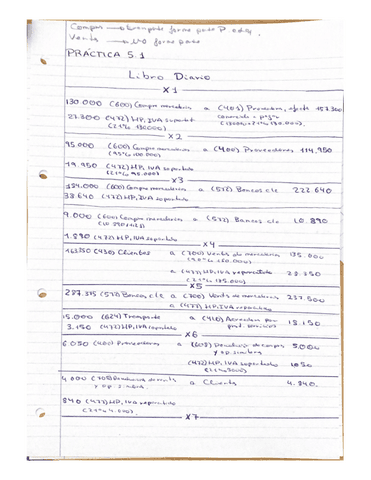 Compras → Transporte forma parte P.
Venta → No forma parte
PRÁCTICA 5.1
Libro Diario
X1
130.000 (600) Compra mercaderías a (401) Proveedores, efectos 157.300
27.300 (472) HP, IVA soportado
(21% 130000)
X2
95.000 (600) Compra mercaderías a (400) Proveedores 114.950
19.950 (472) HP, IVA soportado
(21% 95.000)
X3
184.000 (600) Compra mercaderías a (572) Bancos c/c 222.640
38.640 (472) HP, IVA soportado
9.000 (600) Compra mercaderías a (572) Bancos c/c 10.890
1.890 (472) HP, IVA soportado
X4
(430) Clientes a (700) Venta de mercaderías 135.000
a (477) HP, IVA repercutido 28.350
(21% 135.000)
X5
287.375 (572) Bancos, c/c a (700) Venta de mercaderías 237.500
a (477) HP, IVA repercutido
15.000 (624) Transporte a (410) Acreedores por 18.150
3.150 (472) HP, IVA soportado prest. servicios
X6
6.050 (400) Proveedores a (608) Devolución de compra 5.000
y op. similares
(472) HP, IVA soportado 1050
(21% 5000)
4.000 (708) Devolución de venta a Clientes 4.840
y op. similares
840 (477) HP, IVA repercutido
(21% 4.000)
X7